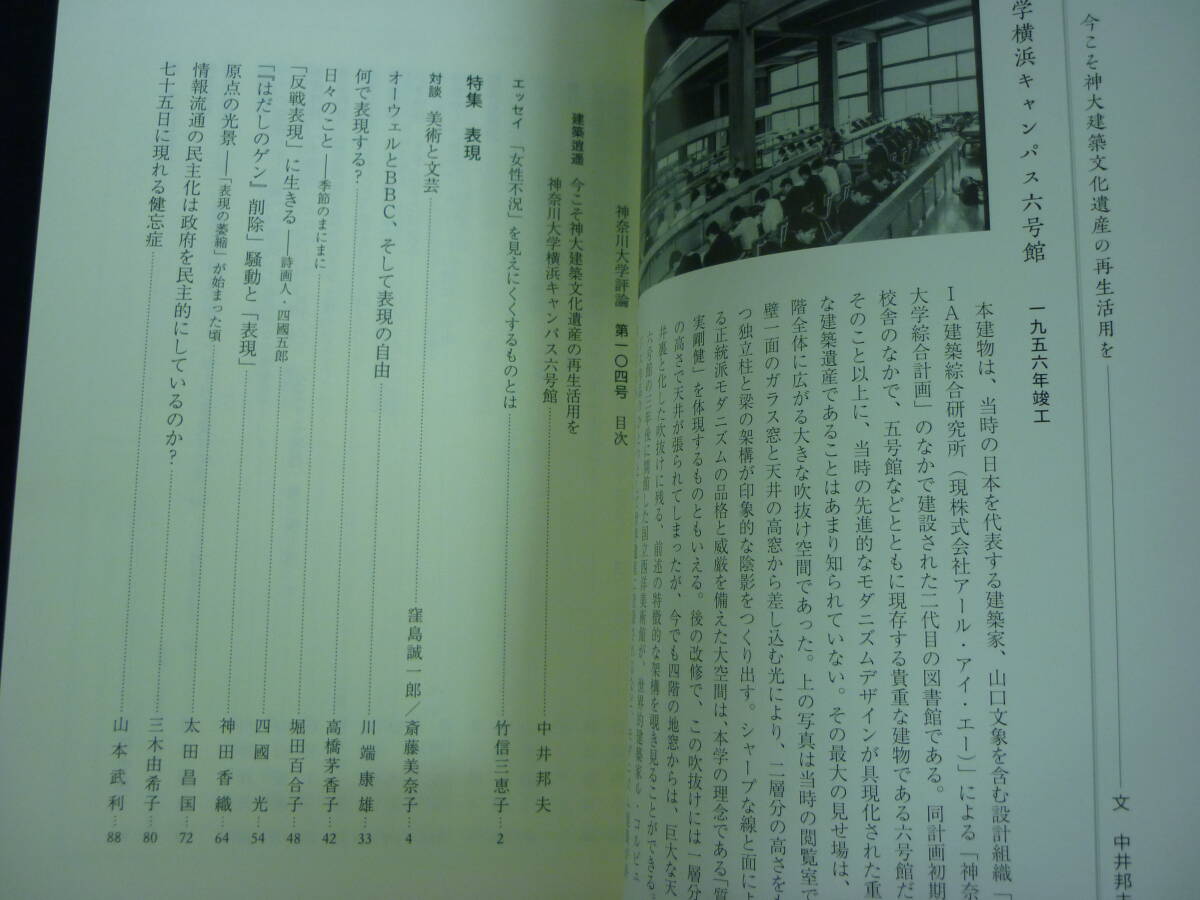 今こそ神大建築文化遺産の再生活用を――文 中井邦夫
学横浜キャンパス六号館 一九五六年竣工
本建物は、当時の日本を代表する建築家、山口文象を含む設計組織「
ＩＡ建築綜合研究所（現株式会社アール・アイ・エー）」による「神奈
大学綜合計画」のなかで建設された二代目の図書館である。同計画初期
校舎のなかで、五号館などとともに現存する貴重な建物である六号館だ
そのこと以上に、当時の先進的なモダニズムデザインが具現化された重
な建築遺産であることはあまり知られていない。その最大の見せ場は、
階全体に広がる大きな吹抜け空間であった。上の写真は当時の閲覧室で
壁一面のガラス窓と天井の高窓から差し込む光により、二層分の高さを
つ独立柱と梁の架構が印象的な陰影をつくり出す。シャープな線と面によ
る正統派モダニズムの品格と威厳を備えた大空間は、本学の理念である「質
実剛健」を体現するものともいえる。後の改修で、この吹抜けには一層分
の高さで天井が張られてしまったが、今でも四階の地窓からは、巨大な天
井裏と化した吹抜けに残る、前述の特徴的な架構を覗き見ることができる
六号館の三年後に開館した国立西洋美術館が、世界的建築家ル・コルビュ
神奈川大学評論 第一〇四号 目次
建築逍遥 今こそ神大建築文化遺産の再生活用を
神奈川大学横浜キャンパス六号館……中井邦夫
エッセイ 「女性不況」を見えにくくするものとは……竹信三恵子…2
特集 表現
対談 美術と文芸……窪島誠一郎／斎藤美奈子…4
オーウェルとＢＢＣ、そして表現の自由……川端康雄…33
何で表現する？……高橋茅香子…42
日々のこと――季節のまにまに……堀田百合子…48
「反戦表現」に生きる――詩画人・四國五郎……四國光…54
「『はだしのゲン』削除」騒動と「表現」……神田香織…64
原点の光景――「表現の萎縮」が始まった頃……太田昌国…72
情報流通の民主化は政府を民主的にしているのか？……三木由希子…80
七十五日に現れる健忘症……山本武利…88